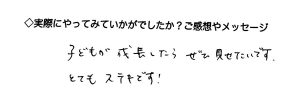 ◇実際にやってみていかがでしたか？ご感想やメッセージ
子どもが成長したら ぜひ見せたいです。
とてもステキです！